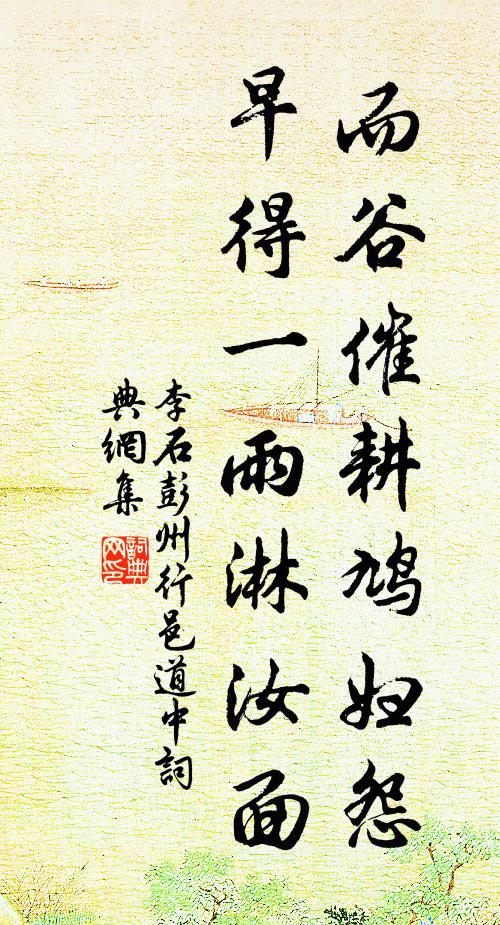 而谷催耕鸠妇怨
早得一雨淋汝面
李石彭州行邑道中詞
典網集
詞典
网印